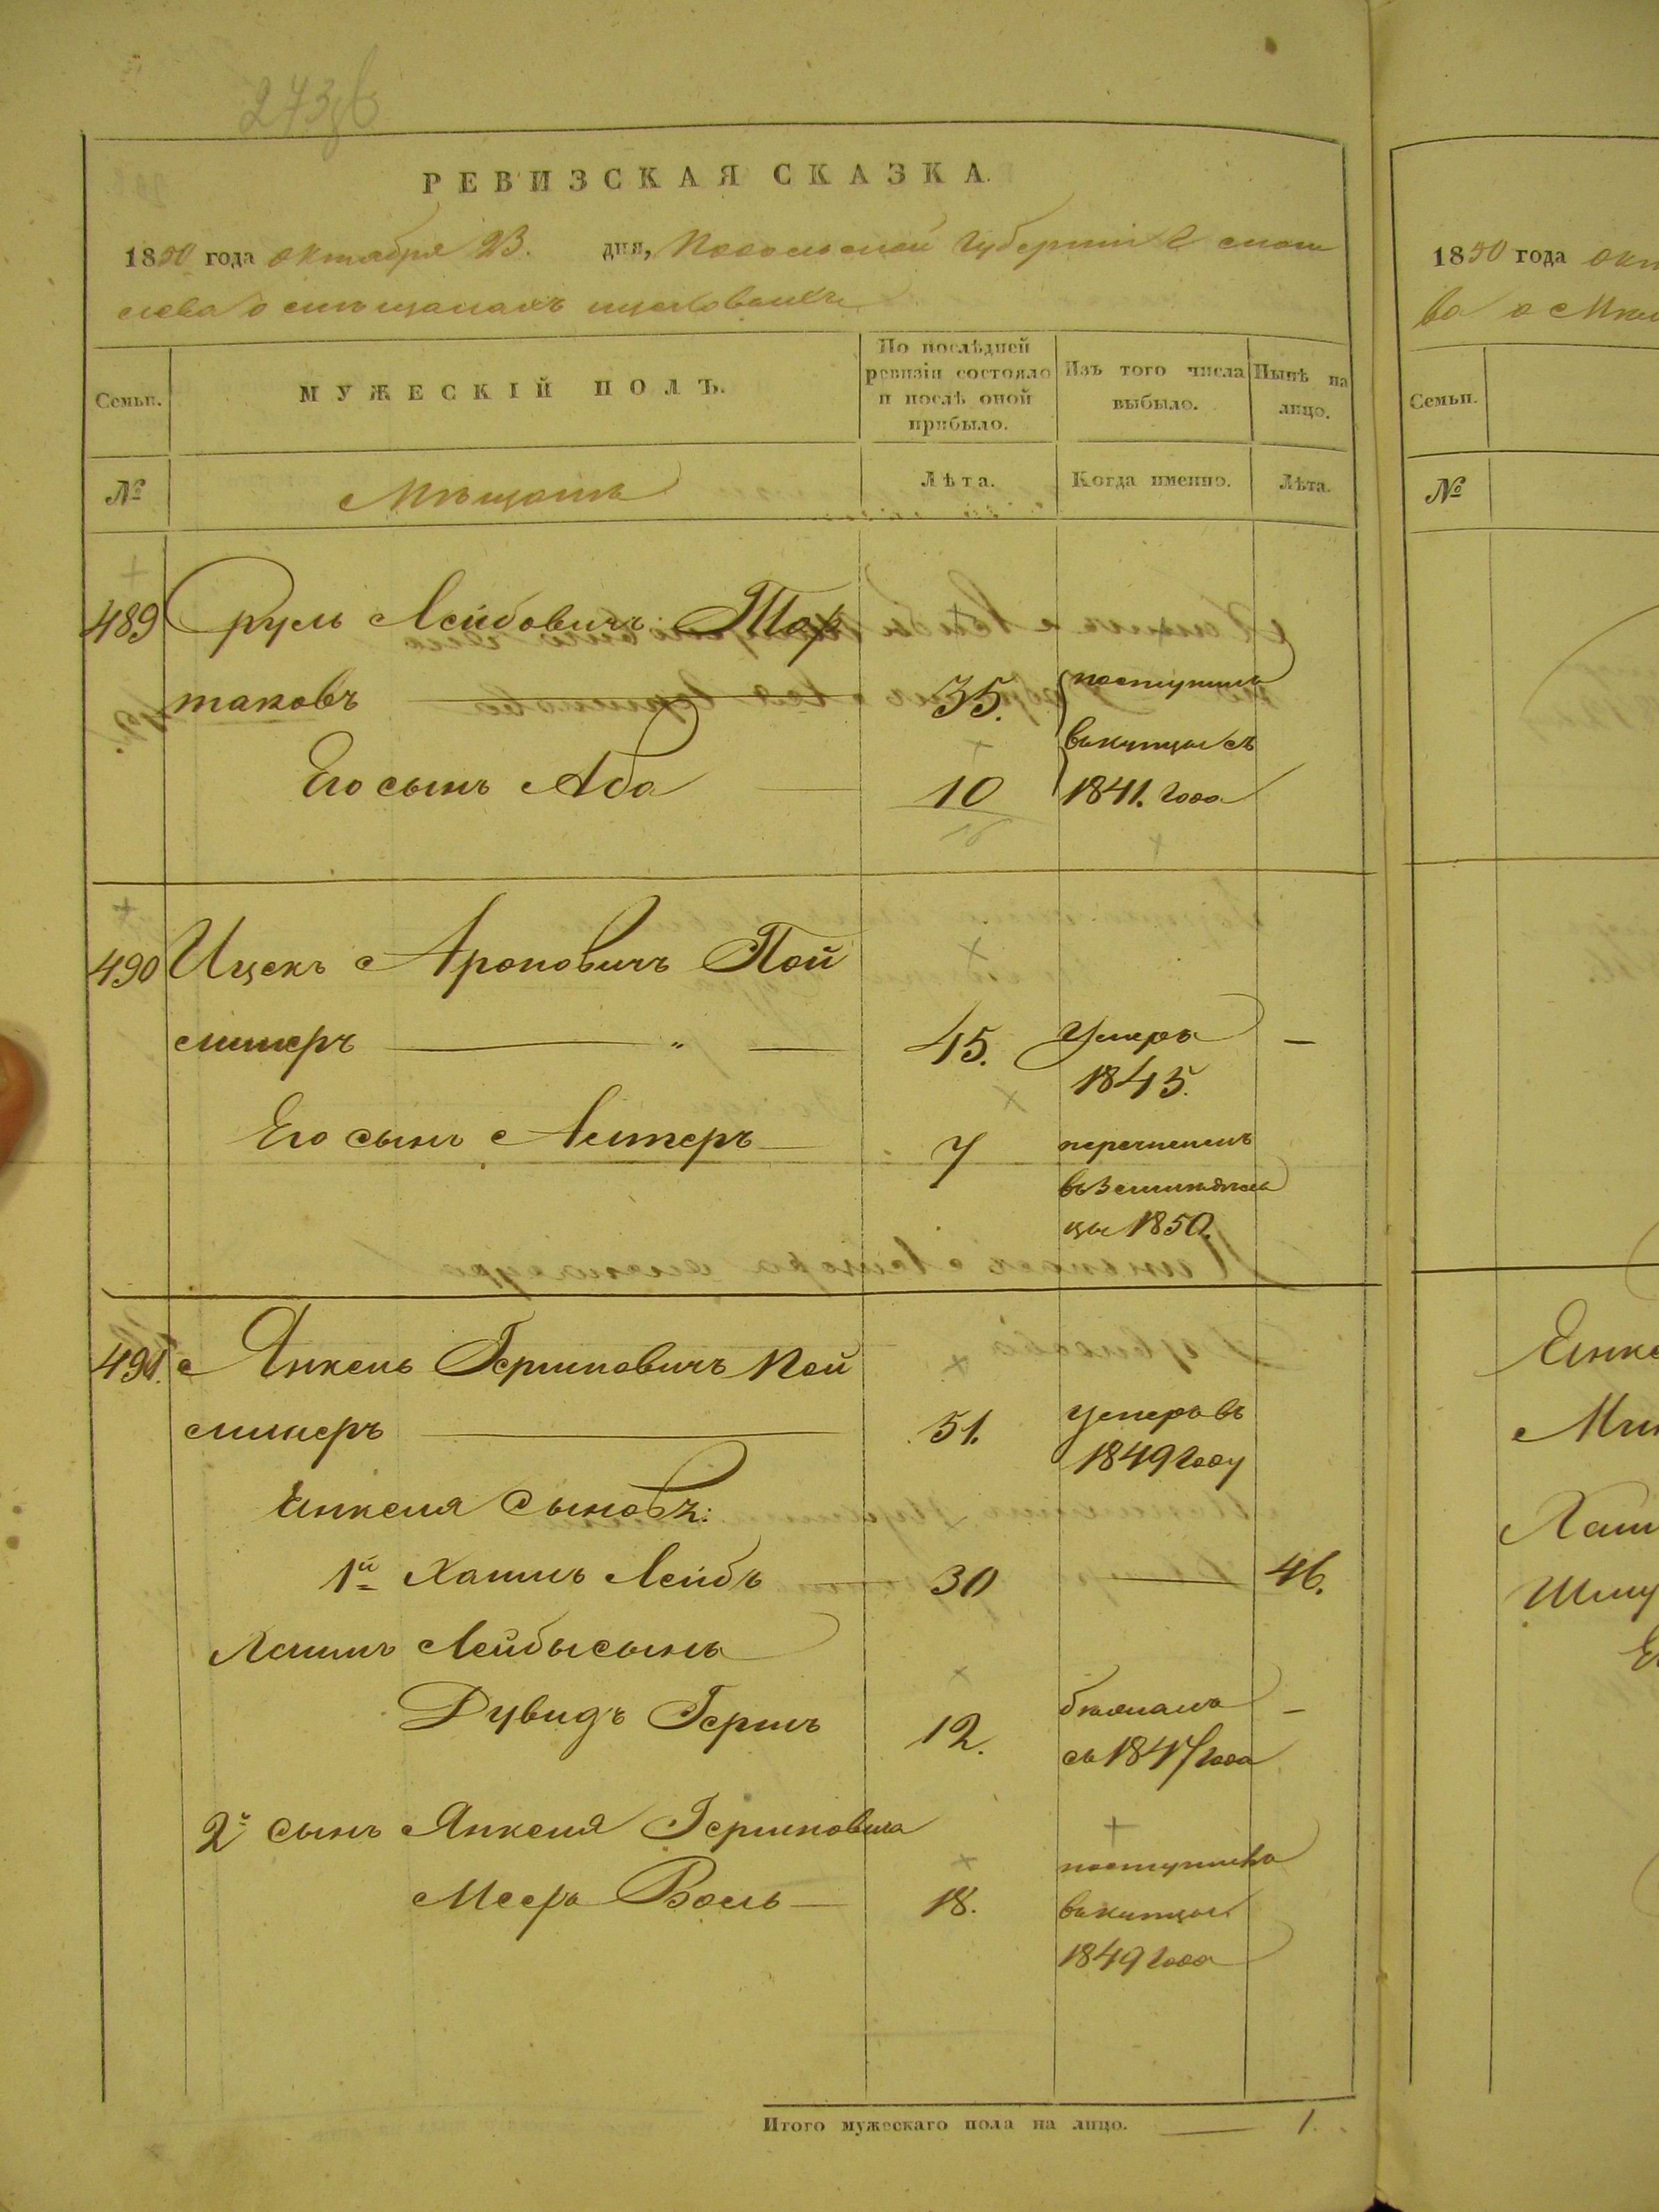 273
РЕВИЗСКАЯ СКАЗКА.
1850 года октября 23. дня, Подольской Губернии
о мѣщанахъ
Семьи. МУЖЕСКІЙ ПОЛЪ. По послѣдней ревизіи состояло и послѣ оной прибыло. Изъ того числа выбыло. Нынѣ на лицо.
№ Мѣщане Лѣта. Когда именно. Лѣта.
489 Сруль Лейбовичъ Тор
таковъ 35. поступилъ
въ купцы съ
Его сынъ Аба 10 1841. года
490 Ицекъ Ароновичъ Пой
слишеръ 45. Умеръ —
1845.
Его сынъ Алтеръ 7 перечисленъ
въ Земледѣль
цы 1850.
491. Янкель Гершковичъ Пой
слишеръ 51. умеръ въ
1849 году
Янкеля сыновъ:
1й Хаимъ Лейбъ 30 — 46.
Хаимъ Лейбы сынъ
Дувидъ Гершъ 12. бѣжалъ —
съ 1847 года
2й сынъ Янкеля Гершковича
Мееръ Волъ 18. поступилъ
въ купцы
1849 года
Итого мужескаго пола на лицо. — 1.
1850 года окт
во о Мѣщ
Семьи.
№
Янке
Хаим
Шму